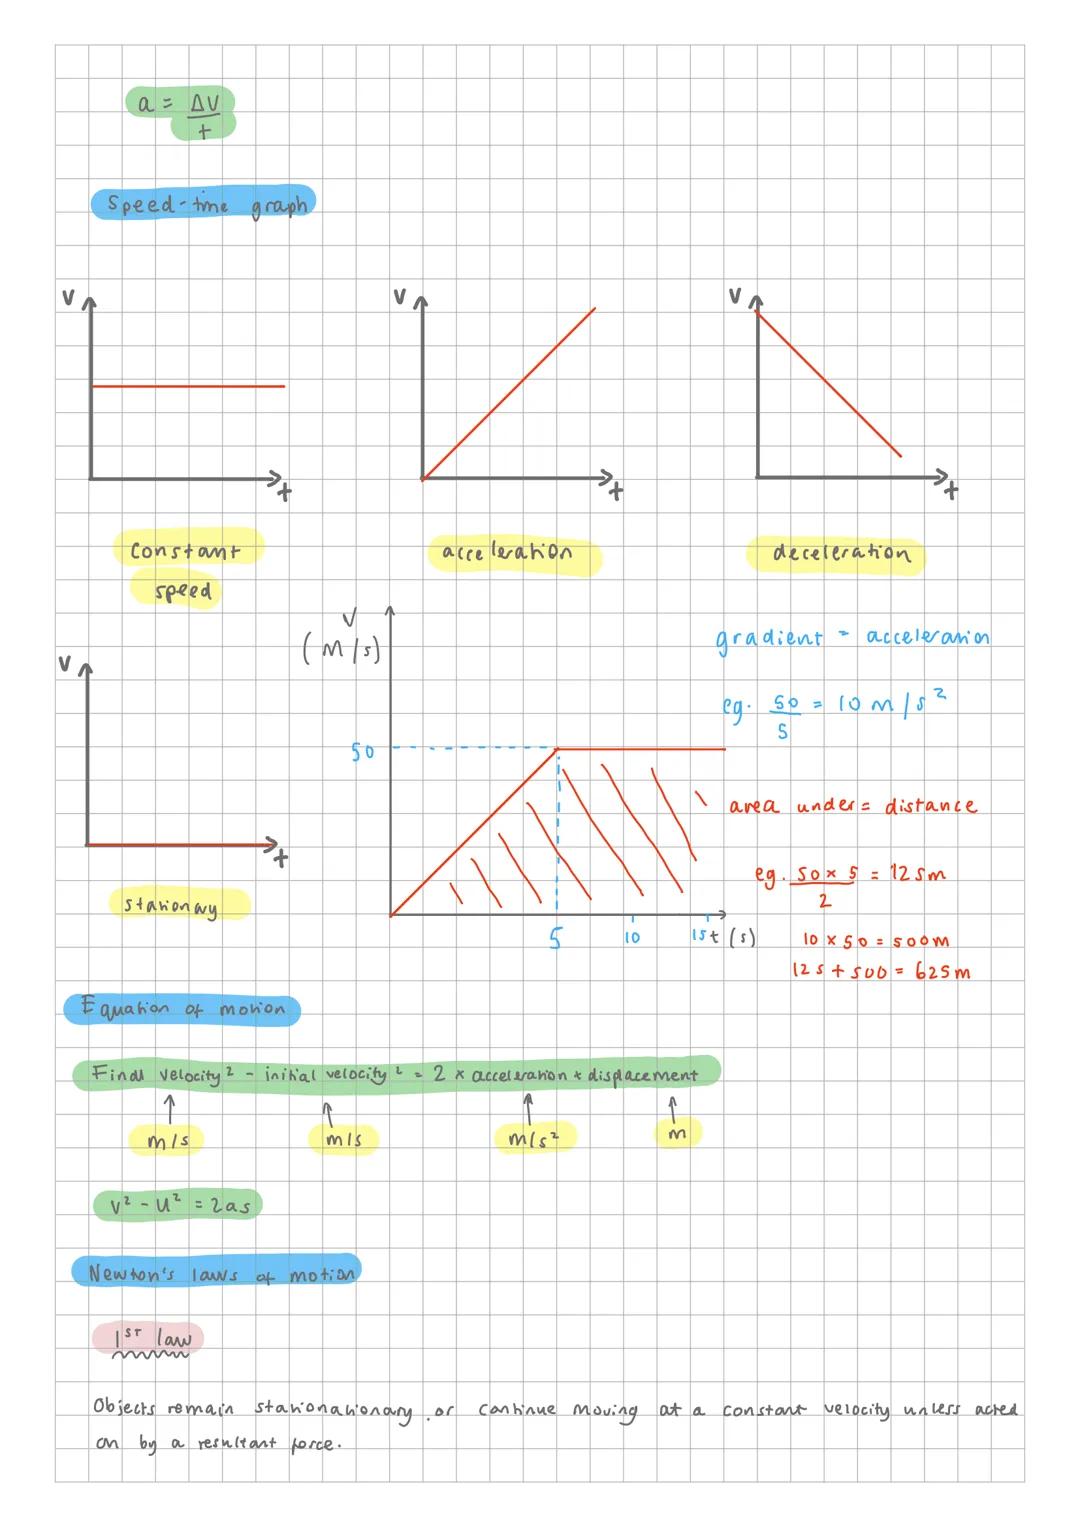 a = ΔV
t
Speed-time graph
V
t
V
t
V
t
Constant
speed
acceleration
deceleration
V
(m/s)
V
t
50
5
10
15 t (s)
stationary
gradient = acceleration
eg. 50 = 10 m/s²
5
area under = distance
eg. 50 × 5 = 125m
2
10 × 50 = 500m
125 + 500 = 625m
Equation of motion
Final velocity² - initial velocity² = 2 × acceleration × displacement
m/s
m/s
m/s²
m
v² - u² = 2as
Newton's laws of motion
1st law
Objects remain stationationary or continue moving at a constant velocity unless acted
on by a resultant force.